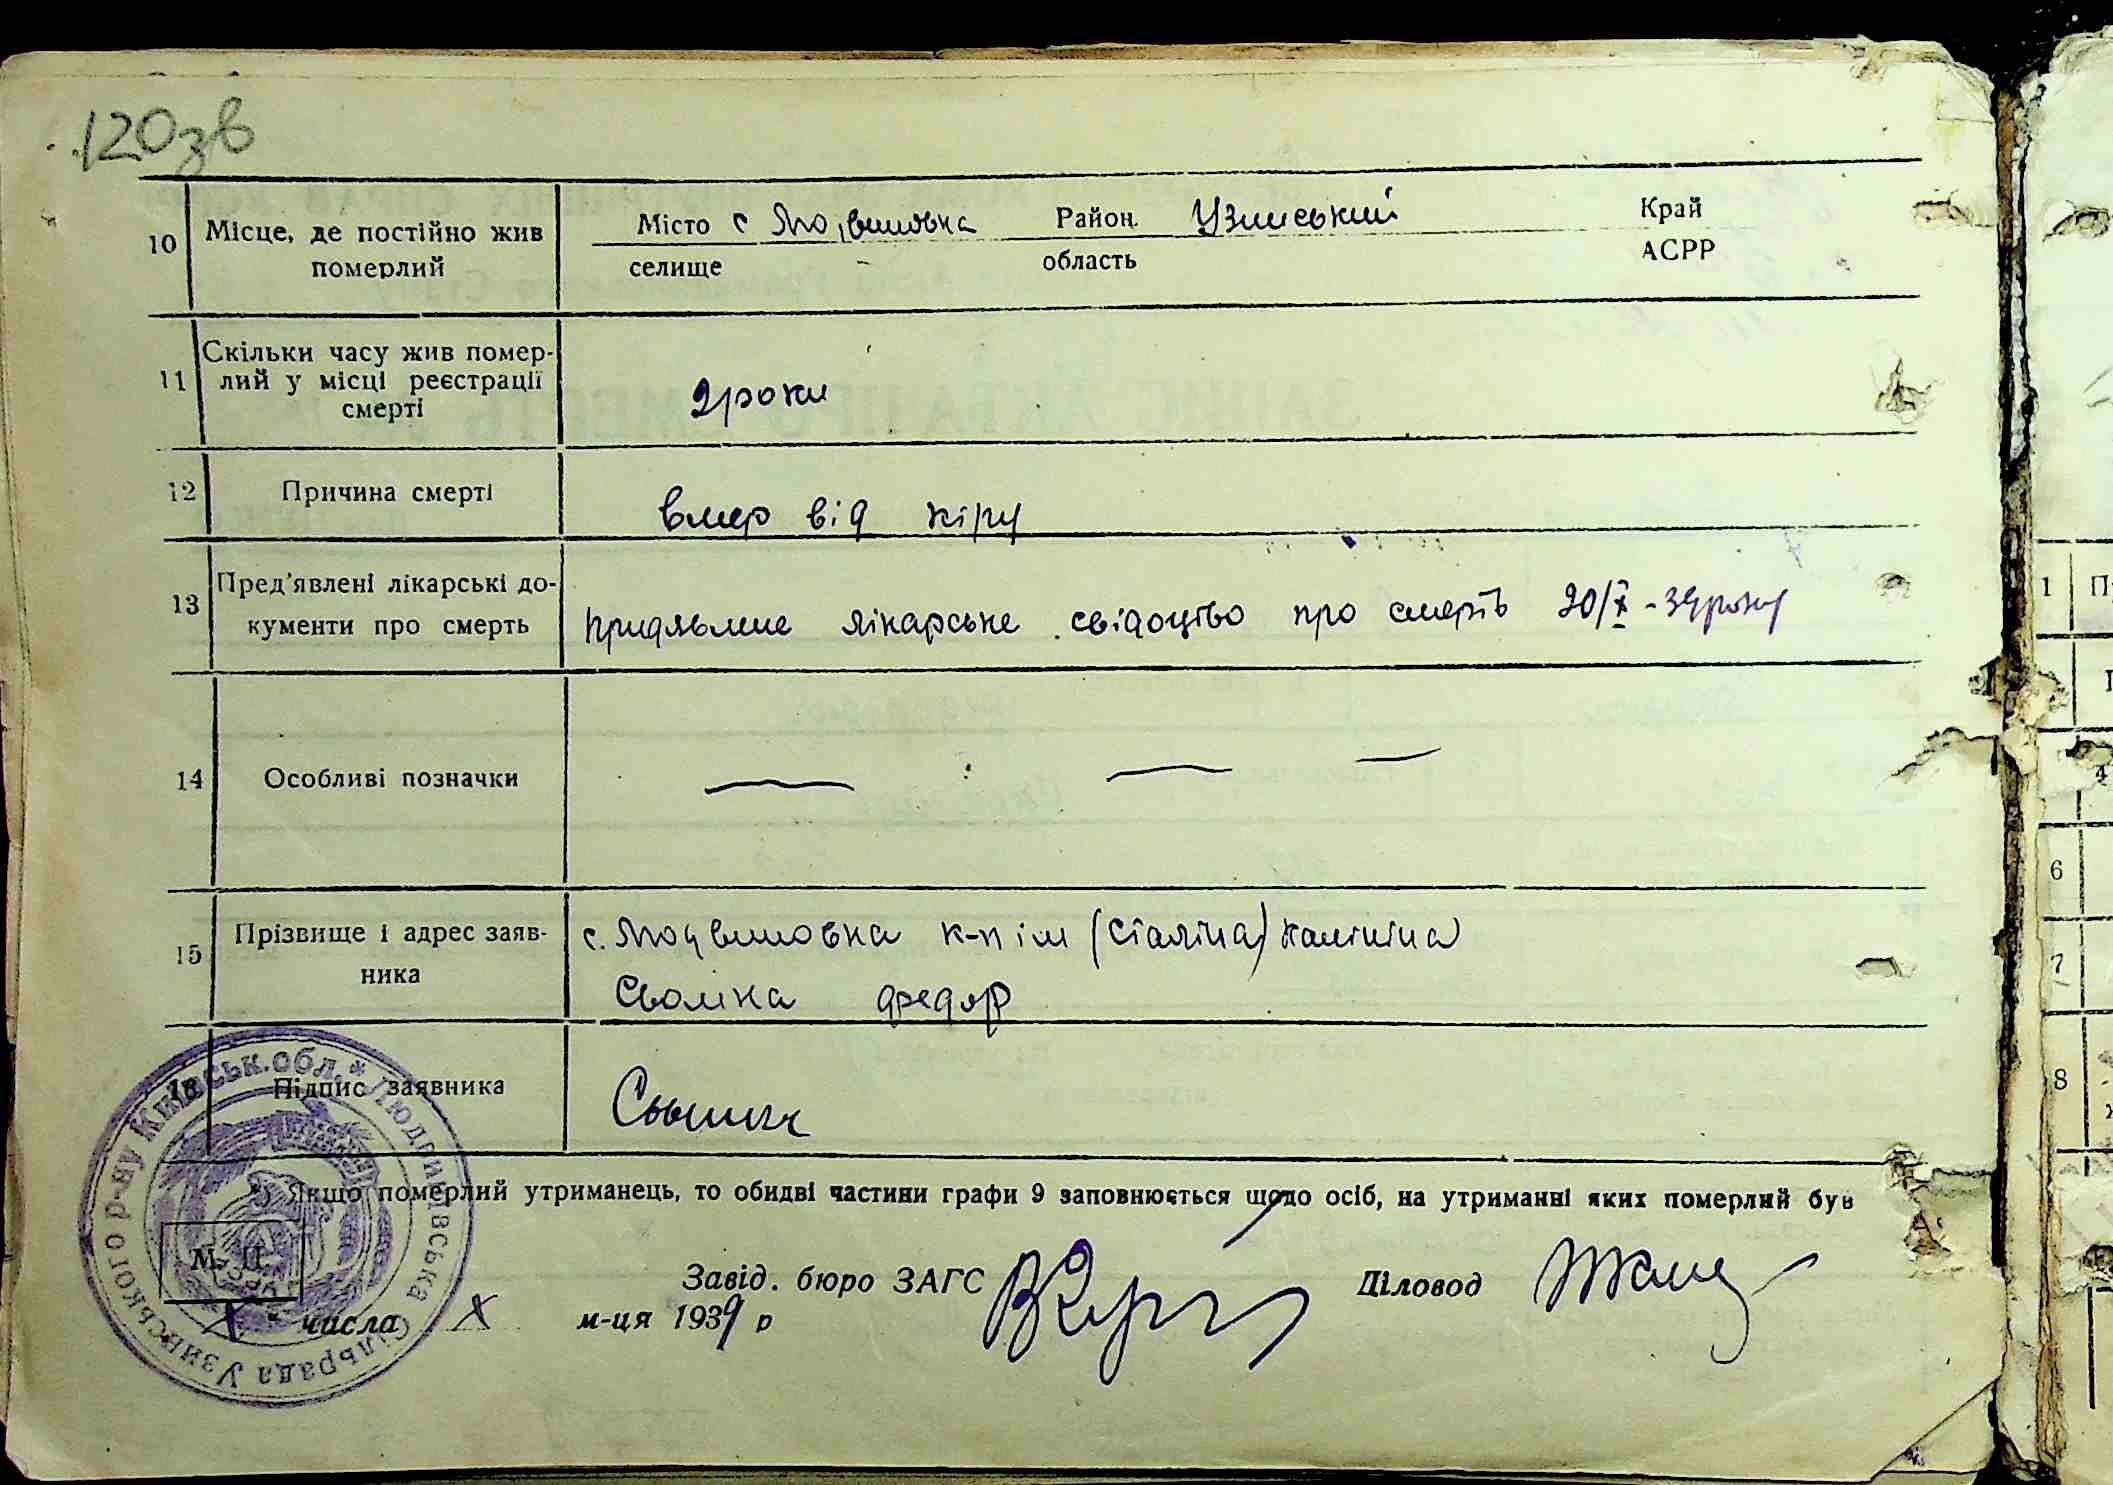 120зв
10 Місце, де постійно жив померлий
Місто с Район Узинський Край
селище область АСРР
11 Скільки часу жив помер-
лий у місці реєстрації
смерті
2 роки
12 Причина смерті
вмер від кіру
13 Пред'явлені лікарські до-
кументи про смерть
лікарське свідоцтво про смерть 20/X-39 року
14 Особливі позначки
— — —
15 Прізвище і адрес заяв-
ника
с. к-п ім (Сталіна) Калініна
Федор
16 Підпис заявника
*) Якщо померлий утриманець, то обидві частини графи 9 заповнюється щодо осіб, на утриманні яких померлий був
М. П.
Завід. бюро ЗАГС Діловод
X " числа X м-ця 1939 р
Людвинівська сільрада Узинського р-ну Київськ. обл. *
1 П
4
6
7
8